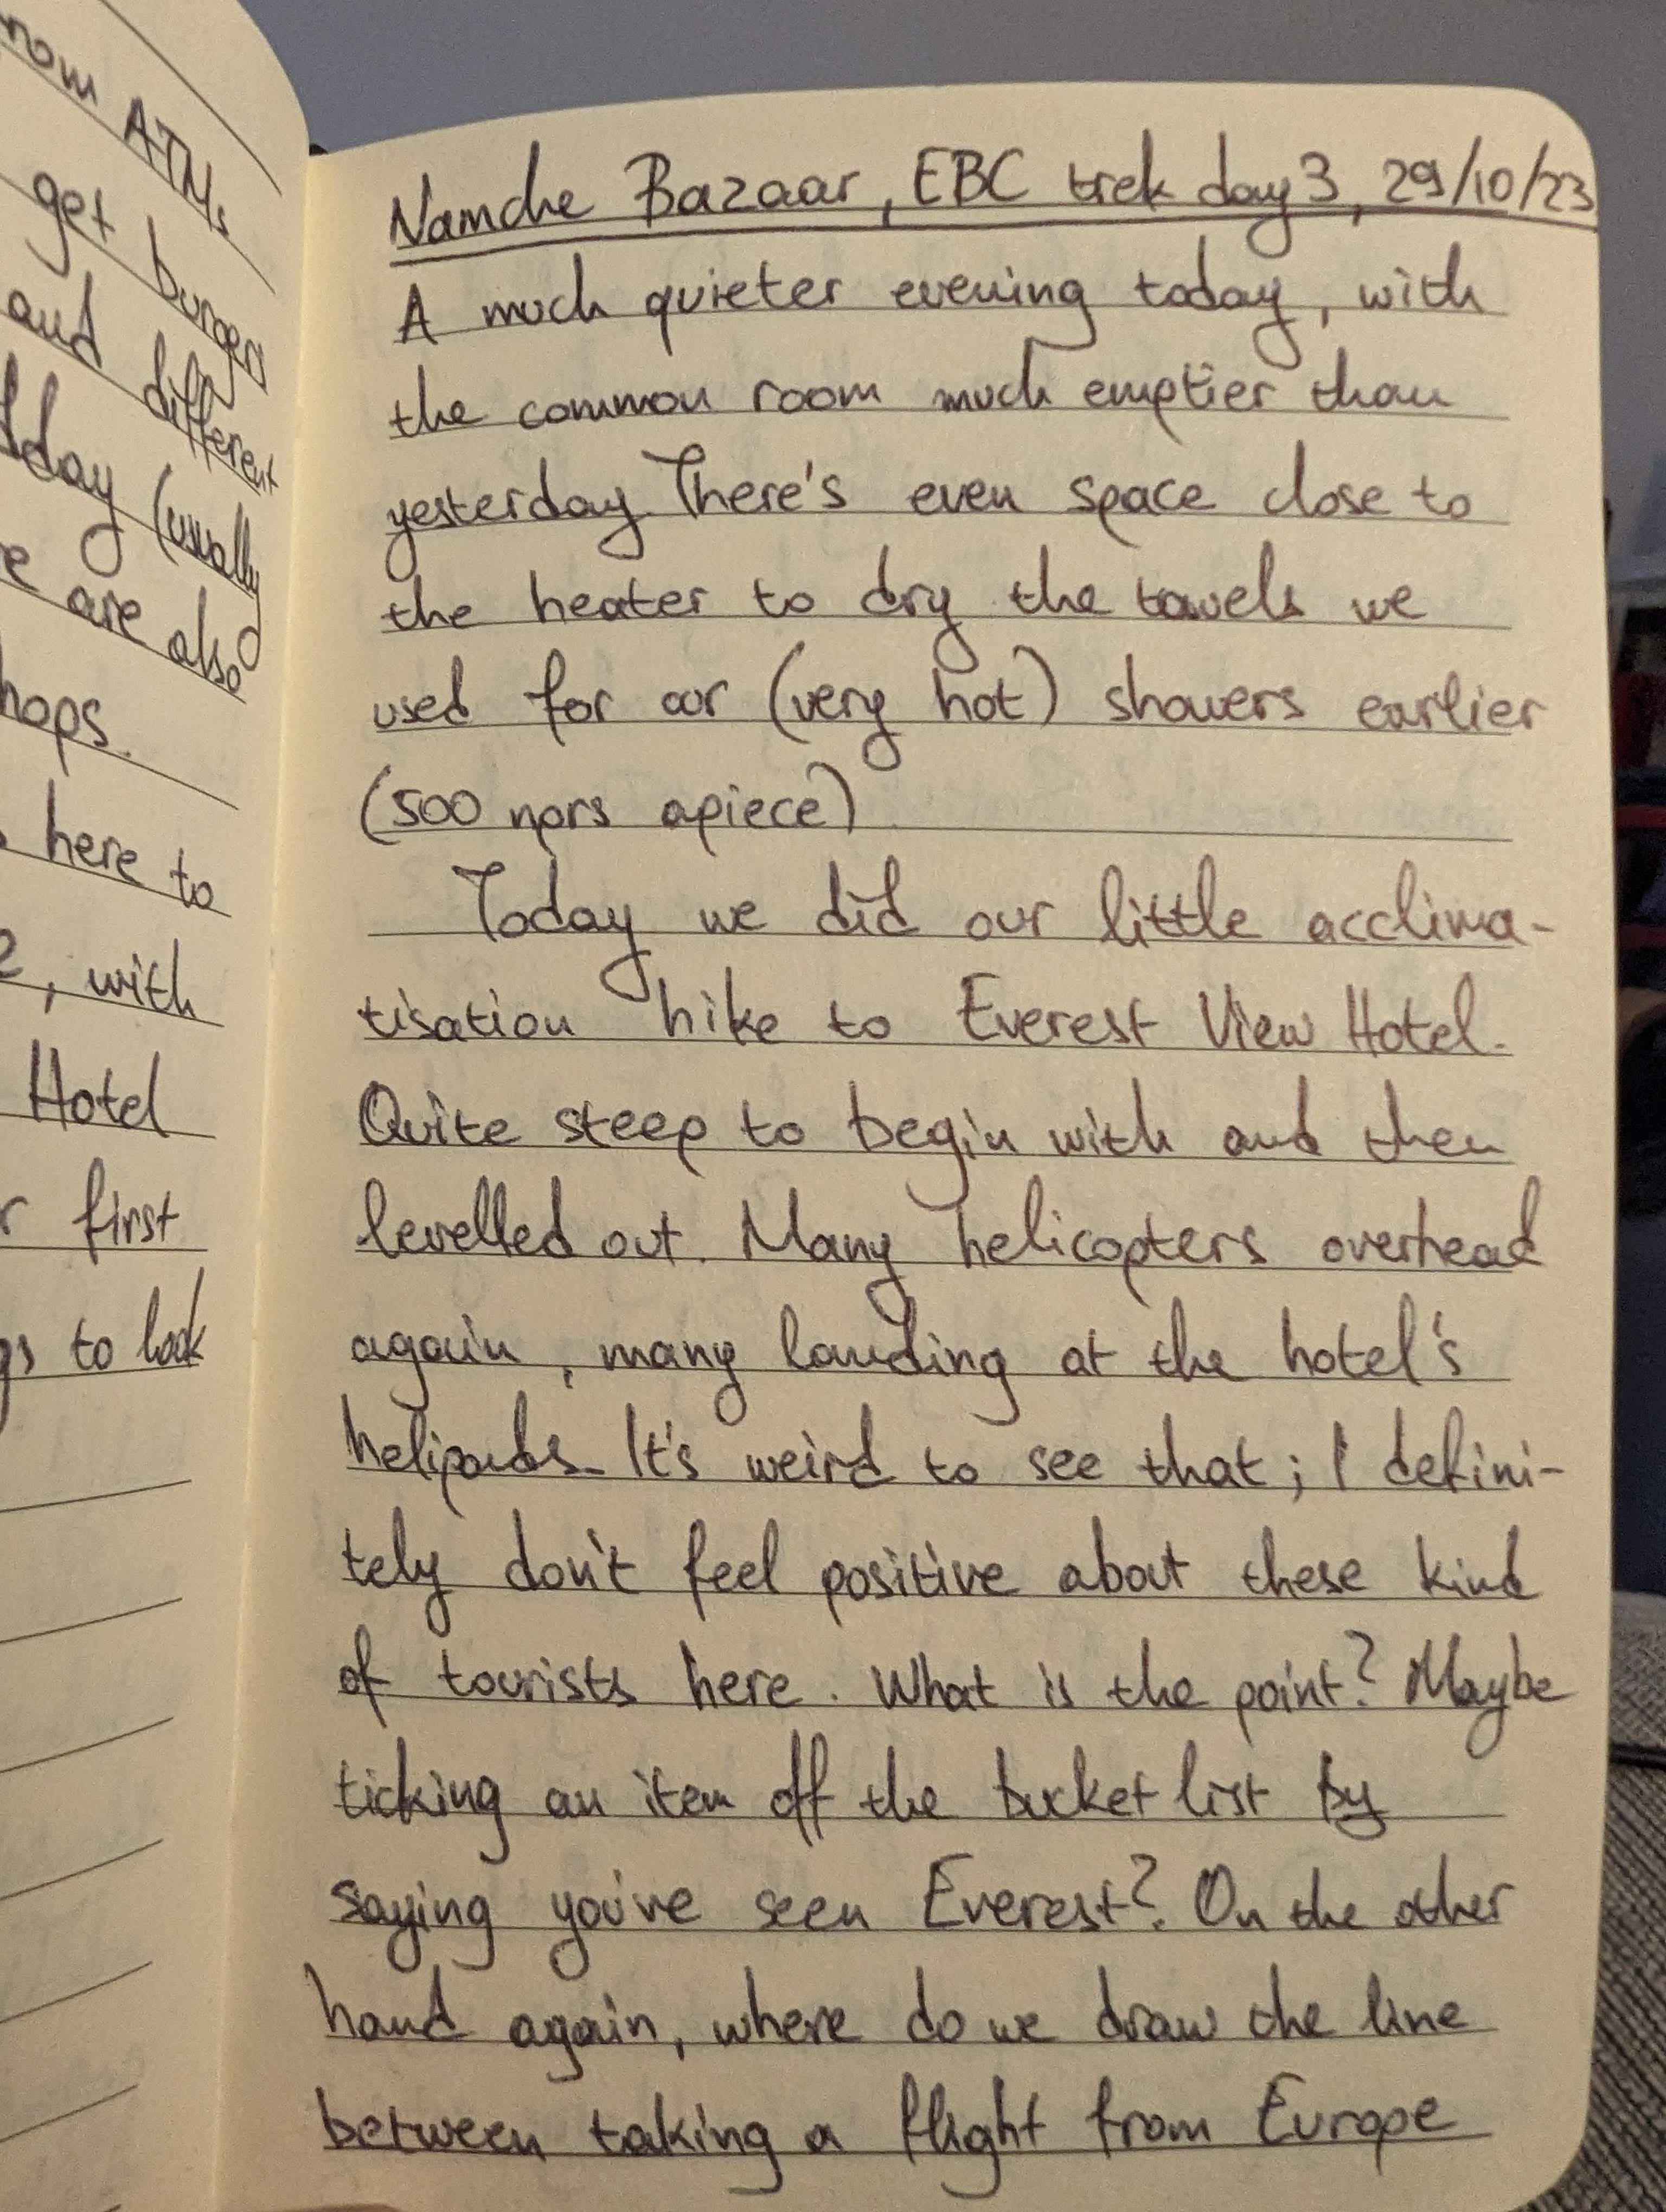 nom ATMs
get burgers
and different
day (usually
e are also
hops.
here to
, with
Hotel
r first
gs to look
Namche Bazaar, EBC trek day 3, 29/10/23
A much quieter evening today, with
the common room much emptier than
yesterday. There's even space close to
the heater to dry the towels we
used for our (very hot) showers earlier
(500 nprs apiece).
Today we did our little acclima-
tisation hike to Everest View Hotel.
Quite steep to begin with and then
levelled out. Many helicopters overhead
again, many landing at the hotel's
helipads. It's weird to see that; I defini-
tely don't feel positive about these kind
of tourists here. What is the point? Maybe
ticking an item off the bucket list by
saying you've seen Everest? On the other
hand again, where do we draw the line
between taking a flight from Europe